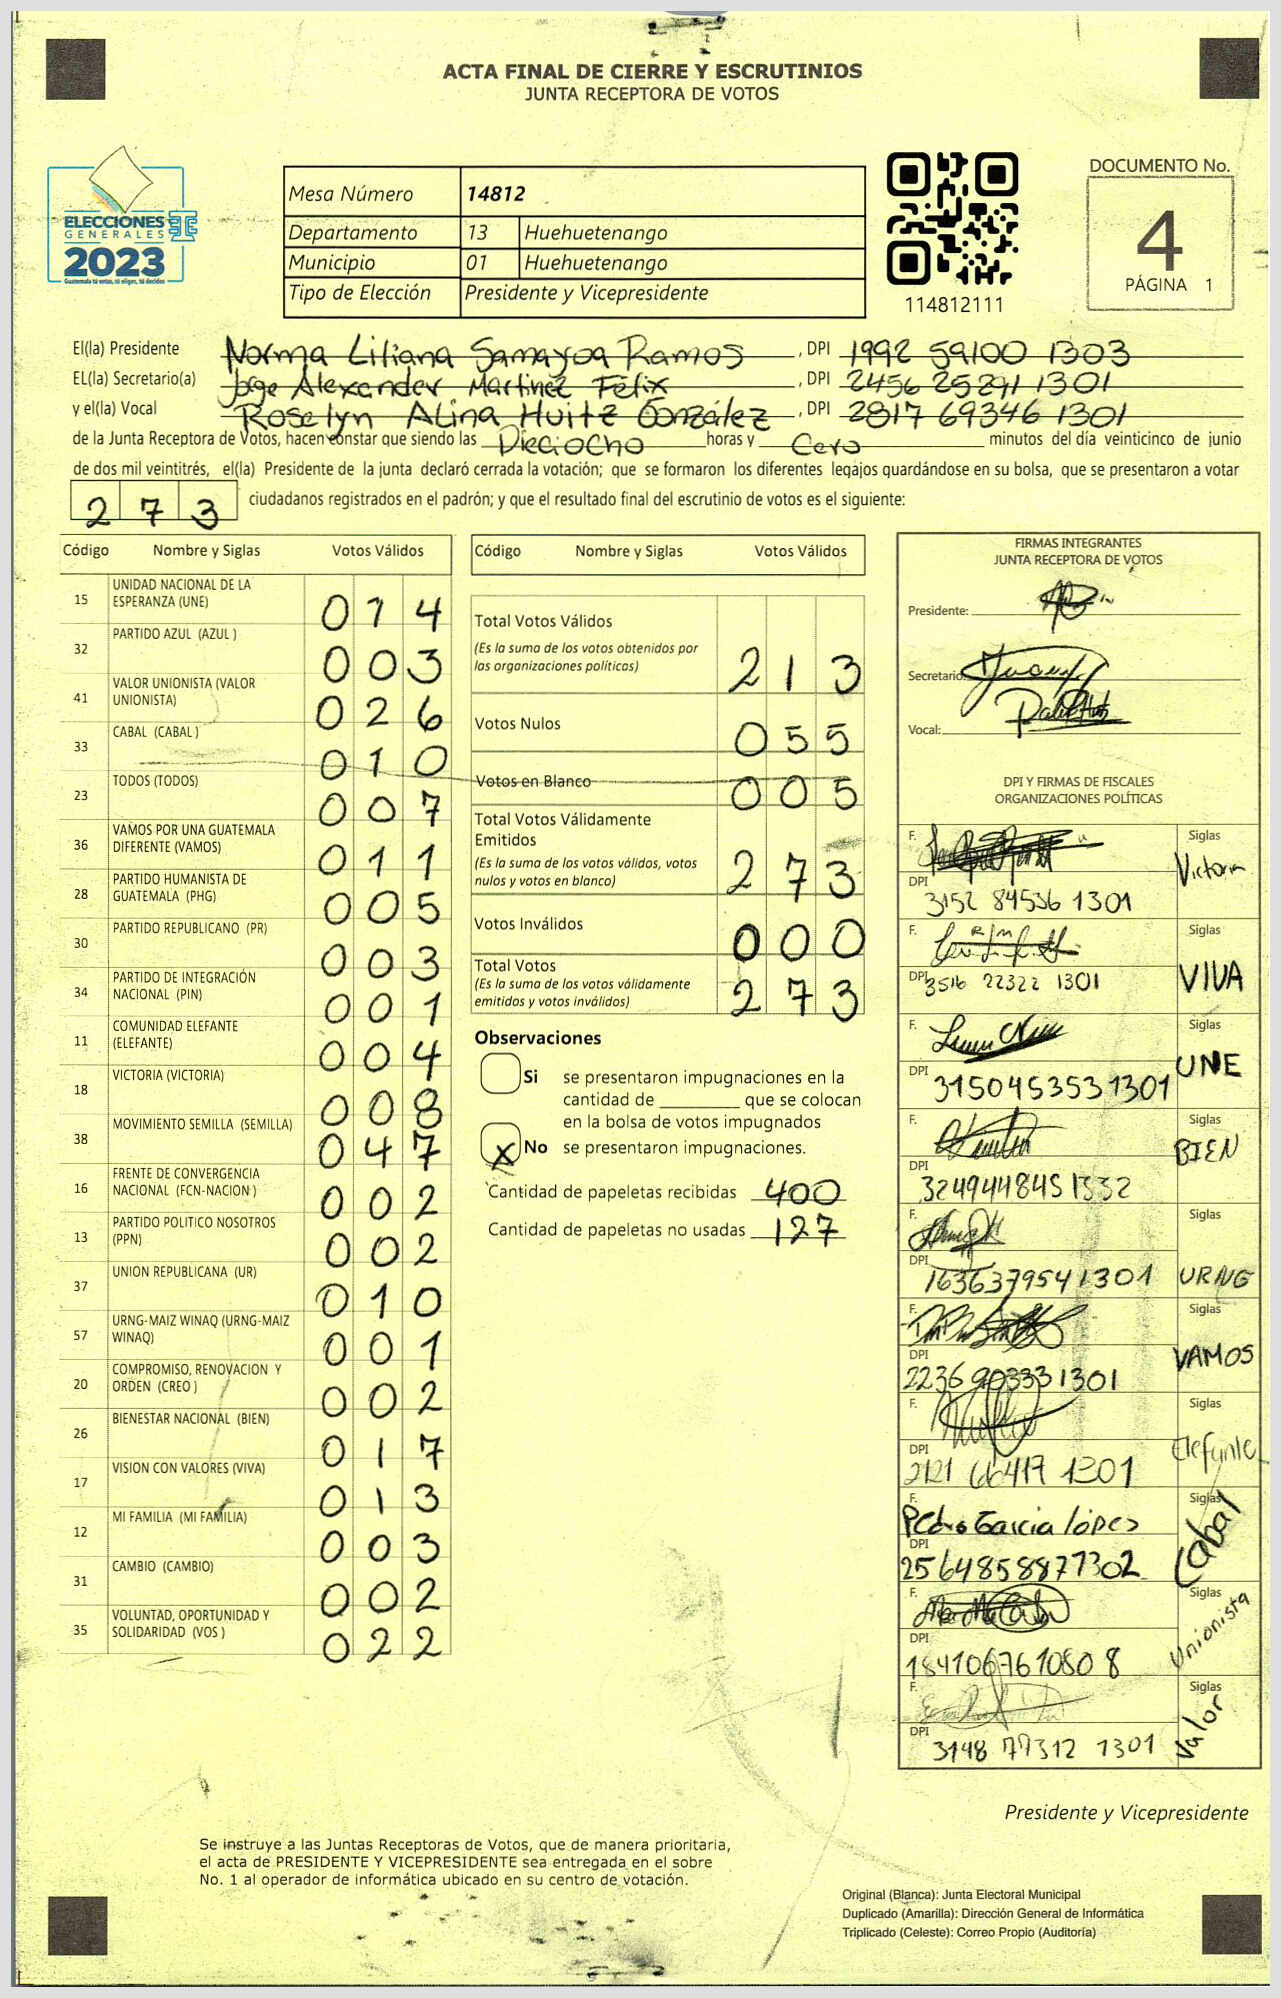 ACTA FINAL DE CIERRE Y ESCRUTINIOS
JUNTA RECEPTORA DE VOTOS
ELECCIONES
GENERALES
2023
Guatemala tú votas, tú eliges, tú decides
Mesa Número 14812
Departamento 13 Huehuetenango
Municipio 01 Huehuetenango
Tipo de Elección Presidente y Vicepresidente
114812111
DOCUMENTO No.
4
PÁGINA 1
El(la) Presidente Norma Liliana Samayoa Ramos, DPI 1992 59100 1303
EL(la) Secretario(a) Jorge Alexander Martinez Félix, DPI 2456 25291 1301
y el(la) Vocal Roselyn Alina Huitz González, DPI 2817 69346 1301
de la Junta Receptora de Votos, hacen constar que siendo las Dieciocho horas y Cero minutos del día veinticinco de junio
de dos mil veintitrés, el(la) Presidente de la junta declaró cerrada la votación; que se formaron los diferentes legajos guardándose en su bolsa, que se presentaron a votar
273 ciudadanos registrados en el padrón; y que el resultado final del escrutinio de votos es el siguiente:
Código Nombre y Siglas Votos Válidos
15 UNIDAD NACIONAL DE LA ESPERANZA (UNE) 014
32 PARTIDO AZUL (AZUL ) 003
41 VALOR UNIONISTA (VALOR UNIONISTA) 026
33 CABAL (CABAL ) 010
23 TODOS (TODOS) 007
36 VAMOS POR UNA GUATEMALA DIFERENTE (VAMOS) 011
28 PARTIDO HUMANISTA DE GUATEMALA (PHG) 005
30 PARTIDO REPUBLICANO (PR) 003
34 PARTIDO DE INTEGRACIÓN NACIONAL (PIN) 001
11 COMUNIDAD ELEFANTE (ELEFANTE) 004
18 VICTORIA (VICTORIA) 008
38 MOVIMIENTO SEMILLA (SEMILLA) 047
16 FRENTE DE CONVERGENCIA NACIONAL (FCN-NACION ) 002
13 PARTIDO POLITICO NOSOTROS (PPN) 002
37 UNION REPUBLICANA (UR) 010
57 URNG-MAIZ WINAQ (URNG-MAIZ WINAQ) 001
20 COMPROMISO, RENOVACION Y ORDEN (CREO ) 002
26 BIENESTAR NACIONAL (BIEN) 017
17 VISION CON VALORES (VIVA) 013
12 MI FAMILIA (MI FAMILIA) 003
31 CAMBIO (CAMBIO) 002
35 VOLUNTAD, OPORTUNIDAD Y SOLIDARIDAD (VOS ) 022
Código Nombre y Siglas Votos Válidos
Total Votos Válidos
(Es la suma de los votos obtenidos por
las organizaciones políticas) 213
Votos Nulos 055
Votos en Blanco 005
Total Votos Válidamente
Emitidos
(Es la suma de los votos válidos, votos
nulos y votos en blanco) 273
Votos Inválidos 000
Total Votos
(Es la suma de los votos válidamente
emitidos y votos inválidos) 273
Observaciones
Si se presentaron impugnaciones en la
cantidad de ________ que se colocan
en la bolsa de votos impugnados
X No se presentaron impugnaciones.
Cantidad de papeletas recibidas 400
Cantidad de papeletas no usadas 127
FIRMAS INTEGRANTES
JUNTA RECEPTORA DE VOTOS
Presidente:
Secretario:
Vocal:
DPI Y FIRMAS DE FISCALES
ORGANIZACIONES POLÍTICAS
F. Siglas Victoria
DPI 3152 84536 1301
F. Siglas VIVA
DPI 3516 22322 1301
F. Siglas UNE
DPI 3150453531301
F. Siglas BIEN
DPI 3249448451332
F. Siglas URNG
DPI 1636379541301
F. Siglas VAMOS
DPI 2236 903331301
F. Siglas Elefante
DPI 2121 66417 1301
F. Pedro Garcia López Siglas Cabal
DPI 2564858871302
F. Siglas Unionista
DPI 1841067610808
F. Siglas Valor
DPI 3148 77312 1301
Presidente y Vicepresidente
Se instruye a las Juntas Receptoras de Votos, que de manera prioritaria,
el acta de PRESIDENTE Y VICEPRESIDENTE sea entregada en el sobre
No. 1 al operador de informática ubicado en su centro de votación.
Original (Blanca): Junta Electoral Municipal
Duplicado (Amarilla): Dirección General de Informática
Triplicado (Celeste): Correo Propio (Auditoría)